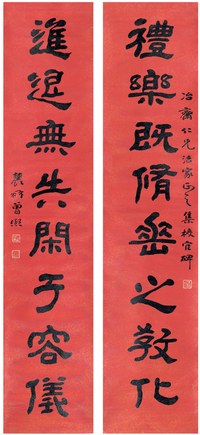 禮樂既脩崇之敎化
冶齋仁兄法家正之集校官碑
進退無失閑于容儀
農髯曾熙